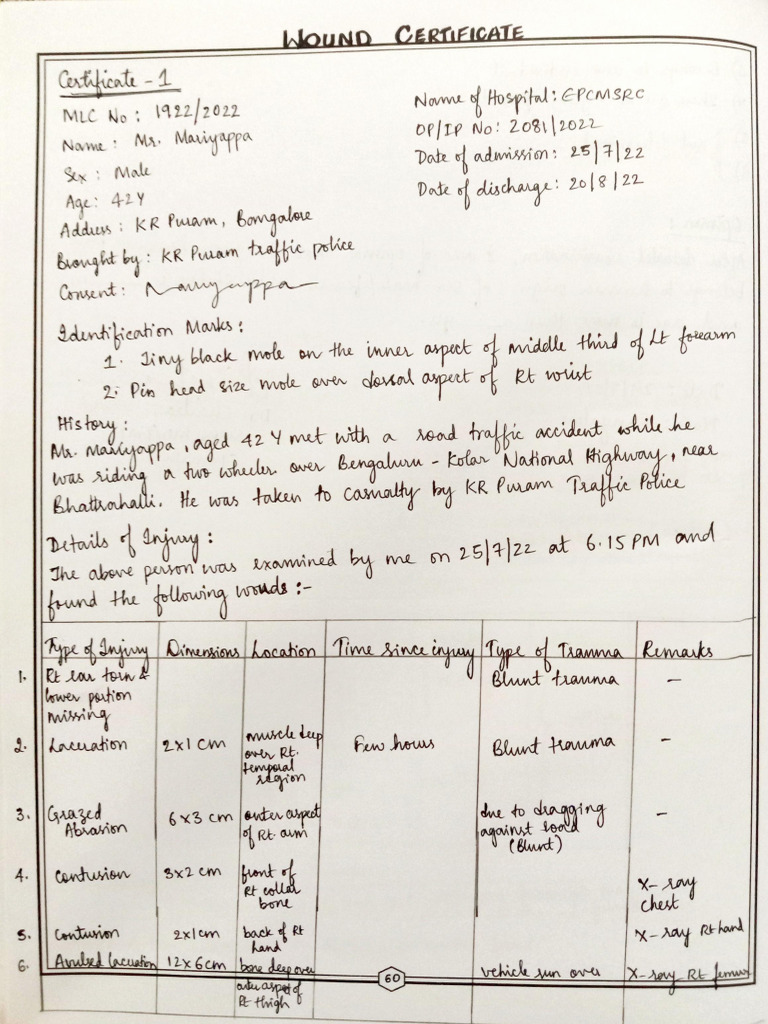 WOUND CERTIFICATE
Certificate - 1
MLC No : 1922/2022
Name : Mr. Mariyappa
Sex : Male
Age : 42Y
Address : KR Puram, Bangalore
Brought by : KR Puram traffic police
Consent : Mariyappa
Name of Hospital : EPCMSRC
OP/IP No : 2081/2022
Date of admission : 25/7/22
Date of discharge : 20/8/22
Identification Marks :
1. Tiny black mole on the inner aspect of middle third of Lt forearm
2. Pin head size mole over dorsal aspect of Rt wrist
History :
Mr. Mariyappa, aged 42 Y met with a road traffic accident while he
was riding a two wheeler over Bengaluru - Kolar National Highway, near
Bhattrahalli. He was taken to casualty by KR Puram Traffic Police
Details of Injury :
The above person was examined by me on 25/7/22 at 6.15 PM and
found the following wounds :-
Type of Injury Dimensions Location Time since injury Type of Trauma Remarks
1. Rt ear torn & Blunt trauma -
lower portion
missing
2. Laceration 2x1 cm muscle deep Few hours Blunt trauma -
over Rt.
temporal
region
3. Grazed 6x3 cm outer aspect due to dragging -
Abrasion of Rt. arm against road
(Blunt)
4. Contusion 3x2 cm front of X-ray
Rt collar chest
bone
5. Contusion 2x1cm back of Rt X-ray Rt hand
hand
6. Avulsed laceration 12x6cm bone deep over vehicle run over X-ray Rt femur
outer aspect of
Rt thigh
60